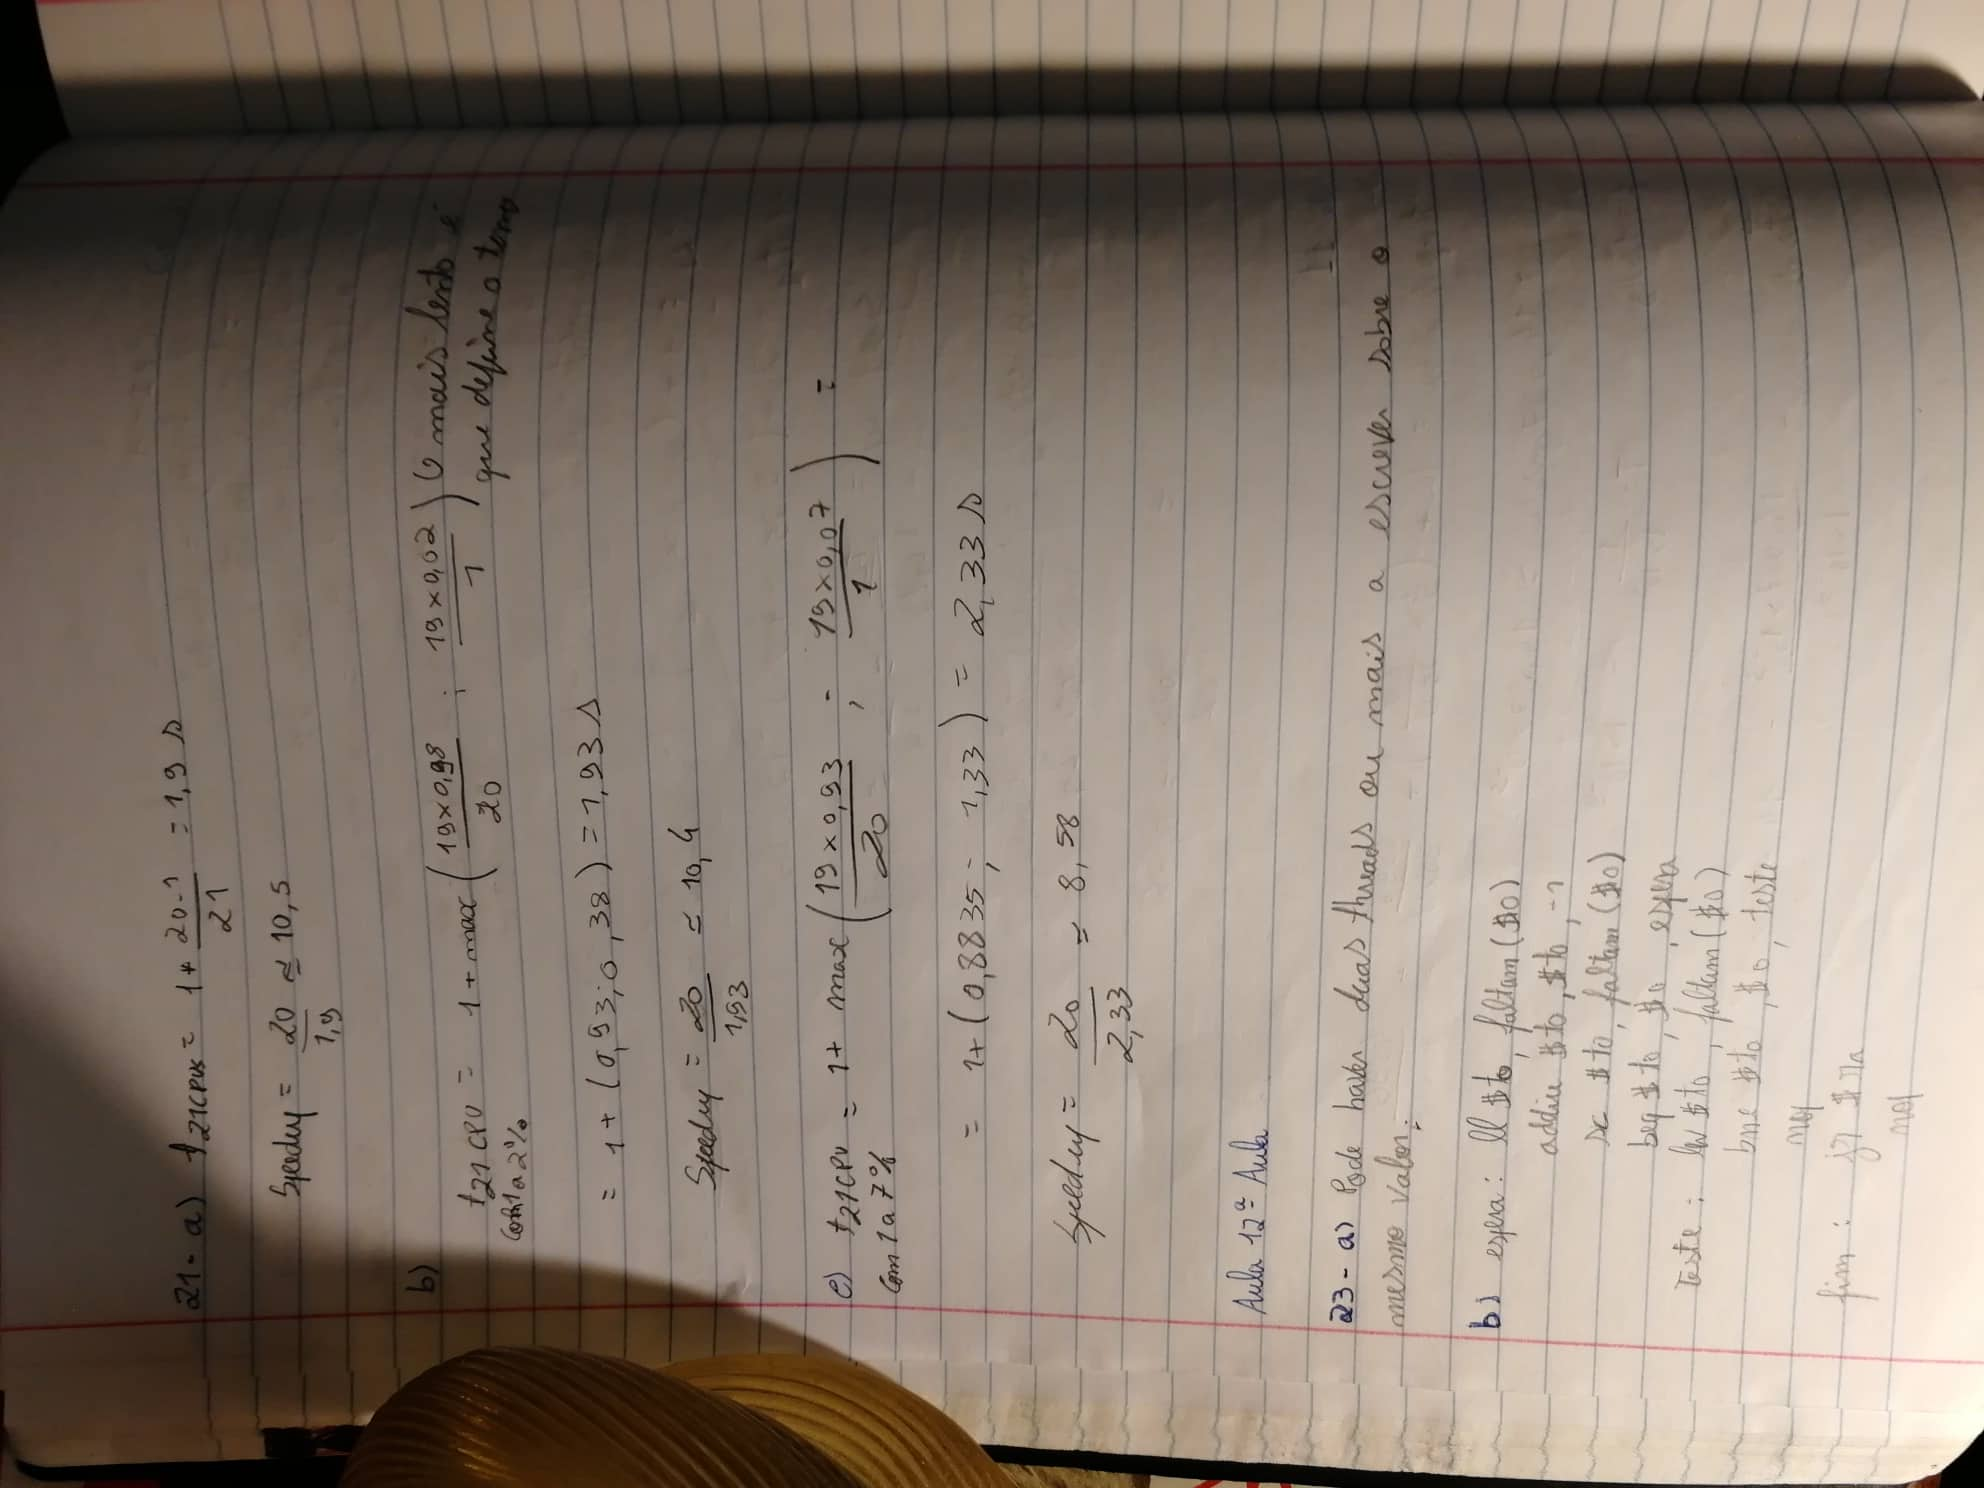 21- a) t21CPUs = 1 + 20-1/21 = 1,9 s
Speedup = 20/1,9 ≃ 10,5
b) (o mais lento é
t21CPU = 1 + max (19×0,98/20 ; 19×0,02/1) que define o tempo
com 1 a 2%
= 1 + (0,93 ; 0,38) = 1,93 s
Speedup = 20/1,93 ≃ 10,4
c) t21CPU = 1 + max (19×0,93/20 ; 19×0,07/1) =
com 1 a 7%
= 1 + (0,8835 ; 1,33) = 2,33 s
Speedup = 20/2,33 ≃ 8,58
Aula 12ª Aula
23- a) Pode haver duas threads ou mais a escrever sobre o
mesmo valor.
b) espera: ll $t0, faltam($0)
addiu $t0, $t0, -1
sc $t0, faltam($0)
beq $t0, $0, espera
Teste: lw $t0, faltam($0)
bne $t0, $0, teste
nop
fim: jr $ra
nop